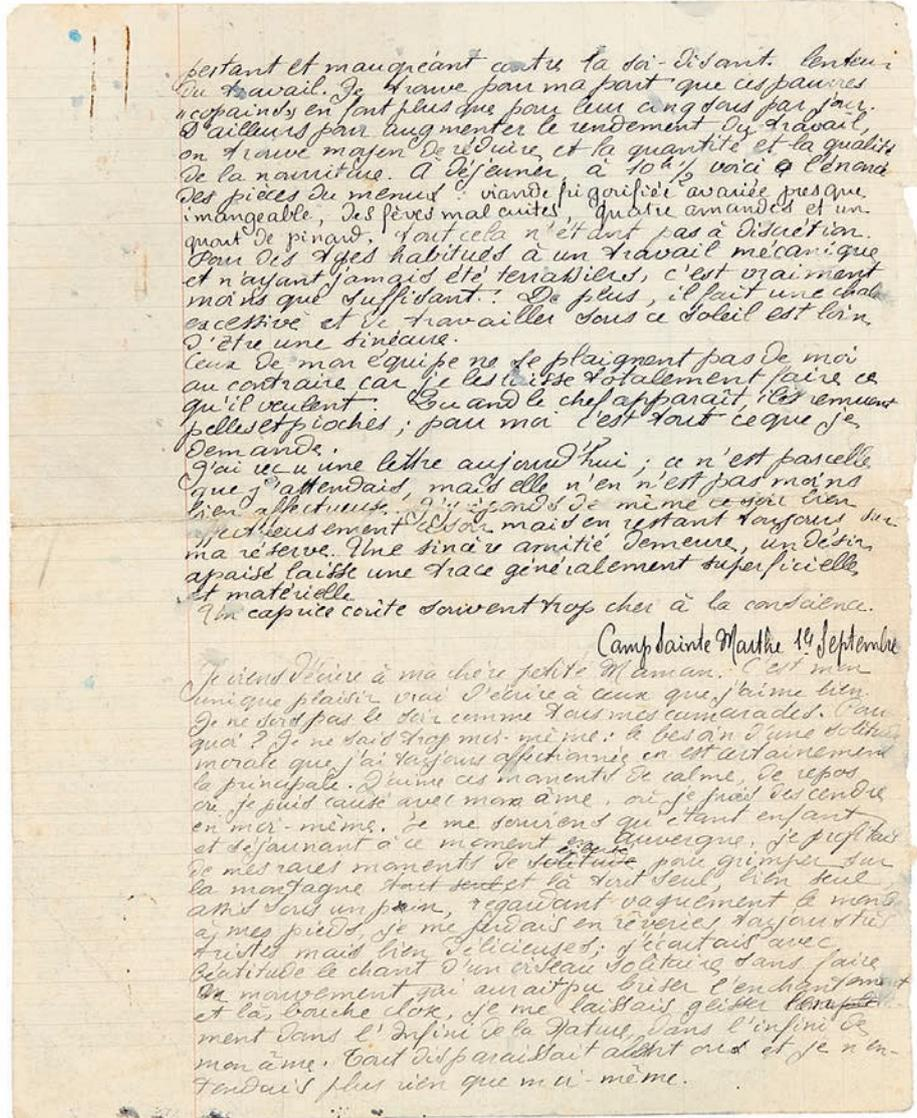 pestant et maugréant contre la soi-disant lenteur
du travail. Je trouve pour ma part que ces pauvres
"copains" en font plus que pour leur cinq sous par jour.
D'ailleurs pour augmenter le rendement du travail,
on trouve moyen de réduire et la quantité et la qualité
de la nourriture. A déjeuner, à 10h ½ voici l'énoncé
des pièces du menus : viande frigorifiée avariée presque
imangeable, des fèves mal cuites, quatre amandes et un
quart de pinard, tout cela n'étant pas à discrétion.
Pour des types habitués à un travail mécanique
et n'ayant jamais été terrassiers, c'est vraiment
moins que suffisant ! De plus, il fait une chaleur
excessive et de travailler sous ce soleil est loin
d'être une sinécure.
Ceux de mon équipe ne se plaignent pas de moi
au contraire car je les laisse totalement faire ce
qu'il veulent ! Quand le chef apparaît, ils remuent
pelles et pioches ; pour moi c'est tout ce que je
demande.
J'ai reçu une lettre aujourd'hui ; ce n'est pas celle
que j'attendais, mais elle n'en n'est pas moins
bien affectueuse. J'y réponds de même ce soir bien
affectueusement mais en restant toujours sur
ma réserve. Une sincère amitié demeure, un désir
apaisé laisse une trace généralement superficielle
et matérielle
Un caprice coûte souvent trop cher à la conscience.
Camp Sainte Marthe 1er Septembre
Je viens d'écrire à ma chère petite Maman. C'est mon
unique plaisir vrai d'écrire à ceux que j'aime bien.
Je ne sors pas le soir comme tous mes camarades. Pour
quoi ? Je ne sais trop moi-même : le besoin d'une solitude
morale que j'ai toujours affectionnée en est certainement
la principale. J'aime ces moments de calme, de repos
où je puis causé avec mon âme, où je puis descendre
en moi-même. Je me souviens qu'étant enfant
et séjournant à ce moment en Auvergne, je profitais
de mes rares moments de solitude, pour grimper sur
la montagne tout seul et là tout seul, bien seul
assis sous un pin, regardant vaguement le monde
à mes pieds, je me perdais en rêveries toujours très
tristes mais bien délicieuses ; j'écoutais avec
béatitude le chant d'un oiseau solitaire sans faire
un mouvement qui aurait pu briser l'enchantement
et là, bouche close, je me laissais glisser
ment dans l'Infini de la Nature, dans l'infini de
mon âme. Tout disparaissait et je n'en-
tendais plus rien que moi-même.